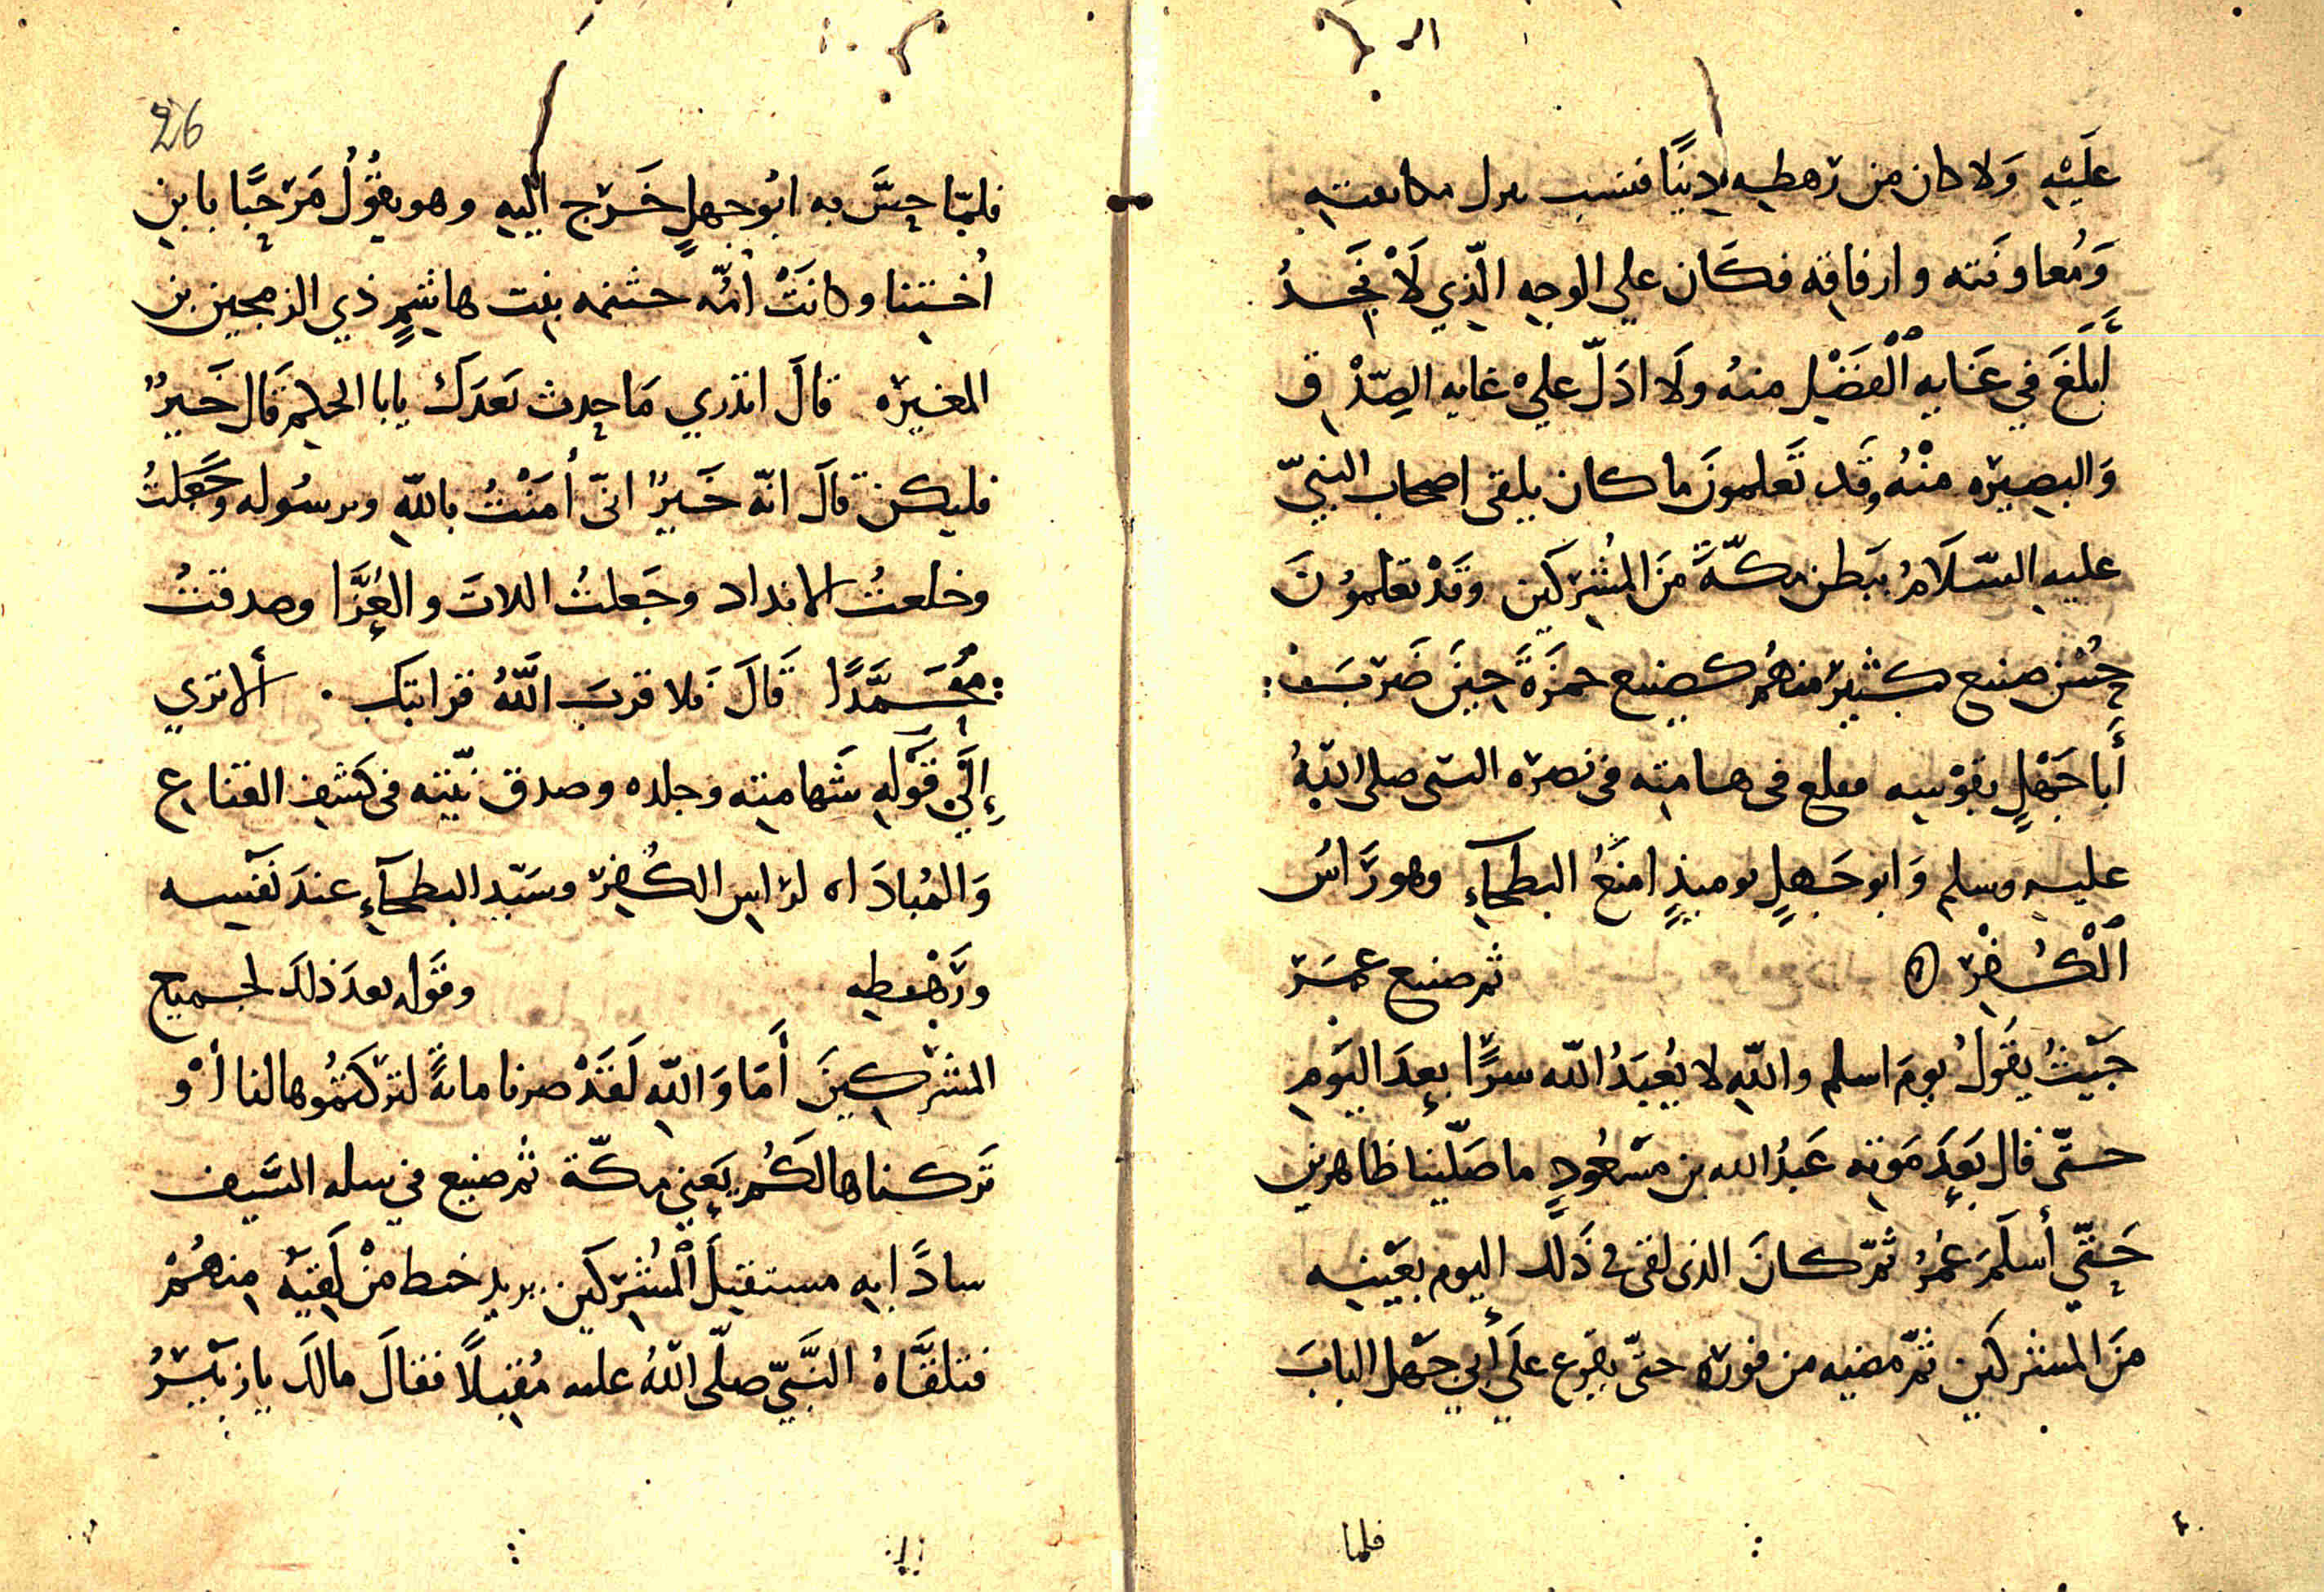 عَلَيْهِ وَلا كان من رهطِهِ دِنيًا فنسب بدل مكانفتهِ
وَمُعاونَته وارفاقه فكَان علي الوجهِ الّذِي لَا نَجدُ
أَبلَغَ فِي عنَايهِ ٱلْفَضْلِ منهُ ولَا ادَلّ عليْ غايه الصِّدْق
وَالبصِيرَه منْهُ وقَد تَعلمونَ ما كان يلقى اصحاب النبيّ
عليهِ السّلَامُ ببَطن مكّةَ منَ المُشرِكَين وقَدْ تعلموُنَ
حُسْن صنيع كثيرٍ منهُم كصنيع حمزَةَ حِينَ ضَربَ
أَبا جَهْلٍ بقَوْسِه فى هامته فى نصره النبى صلى اللّهُ
عليهِ وسلم وَابو جَهلٍ يوميذٍ امنَعُ البطحاءِ وهو رَاسُ
ٱلْكُفْرِ ه ثم صنيع عمَر
حَيْثُ يقَولُ يومَ اسلم واللّهِ لا يُعبَدُ اللّه سرًّا بعدَ اليَومِ
حتّى قال بَعدَ مَوته عَبدُ الله بن مسْعُودٍ ما صَلّينا ظاهرين
حَتّي أسلَمَ عُمَرُ ثمّ كانَ الذى لقى فى ذَلك اليوم بعَيْنِه
منَ المشركَين ثمّ مضيه من فوره حتى يقَرع علَي أبي جَهْل البابَ
فلما
26
فلمّا حسَّ به ابُو جهلٍ خَرج اليهِ وهو يقوُلُ مَرْحبًا بابنِ
اُختِنا وكانَتْ اُمّه حنتمه بنت هاشِمٍ ذي الرمحين بن
المغيره قالَ اتدري مَا حدث بَعدَكَ يابا الحكم قَال خَيرٌ
فليكن قالَ انّه خَيرٌ انّى اُمَنْتُ باللّهِ وبرسُوله وجَعَلتُ
وخلعتُ الانداد وجَعلتُ اللاتَ والعُزَّا وصدقتُ
مُحَمَّدًا قَالَ فَلا قربَ اللَّهُ قرابتك . ألا تري
إِلَي قَوْلهِ شَهامته وجلده وصدق نيّته فى كَشفِ القناع
وَالمُبادَاه لراسِ الكُفر وسَيّدِ البطحآءِ عندَ نَفْسِه
ورَهْطِه وقَوله بعدَ ذلكَ لجميع
المشركينَ أَمَا وَاللّهِ لَقَدْ صرنا مائةً لتركتمُوها لنا أوْ
تَركناها لكُم يَعنِي مكّة ثم صنيع في سله السَّيف
سادًّا به مستقبلَ ٱلمُشركَين يريد خبط منْ لَقيَهُ منهُمْ
فتلقَّاهُ النَّبيّ صلّى اللّهُ عليه مُقبِلاً فقالَ مالكَ يا زبَيرُ